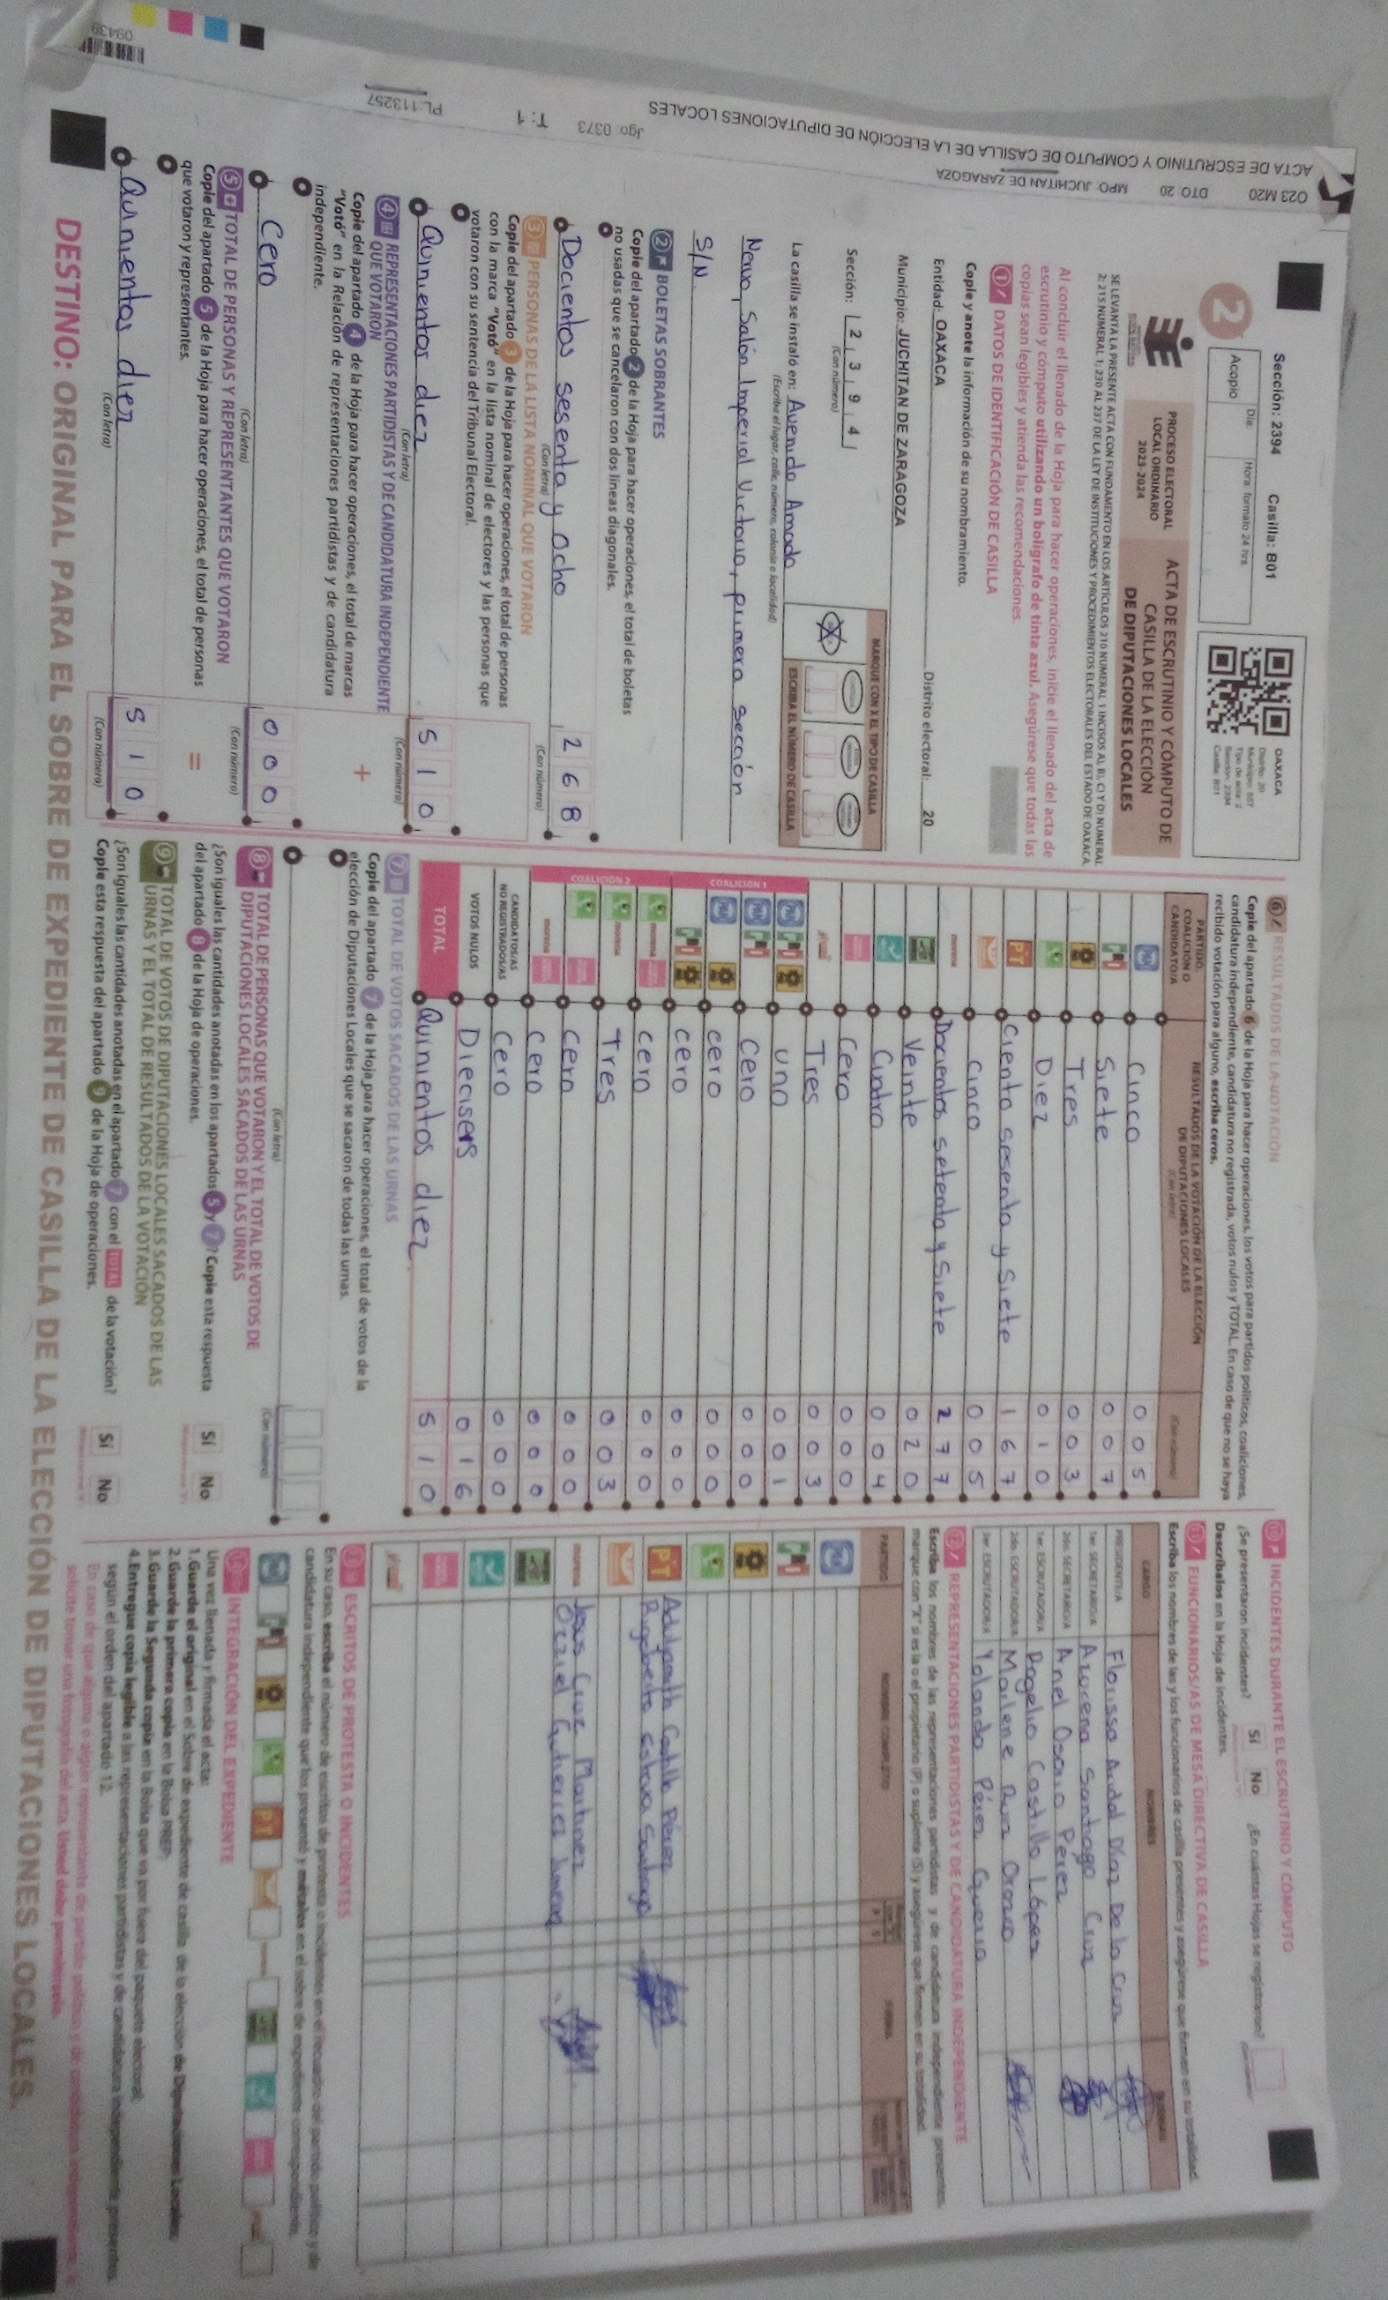 Sección: 2394 Casilla: B01
OAXACA
Distrito: 20
2
Acopio
Día: Hora: formato 24 hrs.
PROCESO ELECTORAL
LOCAL ORDINARIO
2023-2024
ACTA DE ESCRUTINIO Y CÓMPUTO DE
CASILLA DE LA ELECCIÓN
DE DIPUTACIONES LOCALES
Al concluir el llenado de la Hoja para hacer operaciones, inicie el llenado del acta de
escrutinio y cómputo utilizando un bolígrafo de tinta azul. Asegúrese que todas las
copias sean legibles y atienda las recomendaciones.
1 DATOS DE IDENTIFICACIÓN DE CASILLA
Copie y anote la información de su nombramiento.
Entidad: OAXACA Distrito electoral: 20
Municipio: JUCHITAN DE ZARAGOZA
Sección: 2 3 9 4
(Con número)
MARQUE CON X EL TIPO DE CASILLA
ESCRIBA EL NÚMERO DE CASILLA
La casilla se instaló en: Avenida Amado
(Escriba el lugar, calle, número, colonia o localidad)
Nervo, Salón Imperial Victoria, primera sección
S/N.
2 BOLETAS SOBRANTES
Copie del apartado 2 de la Hoja para hacer operaciones, el total de boletas
no usadas que se cancelaron con dos líneas diagonales.
Docientos sesenta y ocho 2 6 8
(Con letra) (Con número)
3 PERSONAS DE LA LISTA NOMINAL QUE VOTARON
Copie del apartado 3 de la Hoja para hacer operaciones, el total de personas
con la marca "Votó" en la lista nominal de electores y las personas que
votaron con su sentencia del Tribunal Electoral.
Quinientos diez 5 1 0
(Con letra) (Con número)
4 REPRESENTACIONES PARTIDISTAS Y DE CANDIDATURA INDEPENDIENTE
QUE VOTARON
Copie del apartado 4 de la Hoja para hacer operaciones, el total de marcas
"Votó" en la Relación de representaciones partidistas y de candidatura
independiente.
+
Cero 0 0 0
(Con letra) (Con número)
5 TOTAL DE PERSONAS Y REPRESENTANTES QUE VOTARON
Copie del apartado 5 de la Hoja para hacer operaciones, el total de personas
que votaron y representantes.
=
Quinientos diez 5 1 0
(Con letra) (Con número)
6 RESULTADOS DE LA VOTACIÓN
Copie del apartado 6 de la Hoja para hacer operaciones, los votos para partidos políticos, coaliciones,
candidatura independiente, candidatura no registrada, votos nulos y TOTAL. En caso de que no se haya
recibido votación para alguno, escriba ceros.
PARTIDO,
COALICIÓN O
CANDIDATO/A
RESULTADOS DE LA VOTACIÓN DE LA ELECCIÓN
DE DIPUTACIONES LOCALES
(Con letra) (Con número)
PAN Cinco 0 0 5
PRI Siete 0 0 7
Tres 0 0 3
Diez 0 1 0
PT Ciento sesenta y siete 1 6 7
Cinco 0 0 5
morena Docientos setenta y siete 2 7 7
Veinte 0 2 0
Cuatro 0 0 4
Cero 0 0 0
Tres 0 0 3
COALICIÓN 1
uno 0 0 1
Cero 0 0 0
cero 0 0 0
cero 0 0 0
COALICIÓN 2
cero 0 0 0
Tres 0 0 3
Cero 0 0 0
Cero 0 0 0
CANDIDATOS/AS
NO REGISTRADOS/AS Cero 0 0 0
VOTOS NULOS Dieciseis 0 1 6
TOTAL Quinientos diez 5 1 0
7 TOTAL DE VOTOS SACADOS DE LAS URNAS
Copie del apartado 7 de la Hoja para hacer operaciones, el total de votos de la
elección de Diputaciones Locales que se sacaron de todas las urnas.
(Con letra) (Con número)
8 TOTAL DE PERSONAS QUE VOTARON Y EL TOTAL DE VOTOS DE
DIPUTACIONES LOCALES SACADOS DE LAS URNAS
¿Son iguales las cantidades anotadas en los apartados 5 y 7? Copie esta respuesta
del apartado 8 de la Hoja de operaciones.
Sí No
9 TOTAL DE VOTOS DE DIPUTACIONES LOCALES SACADOS DE LAS
URNAS Y EL TOTAL DE RESULTADOS DE LA VOTACIÓN
¿Son iguales las cantidades anotadas en el apartado 7 con el TOTAL de la votación?
Copie esta respuesta del apartado 9 de la Hoja de operaciones.
Sí No
10 INCIDENTES DURANTE EL ESCRUTINIO Y CÓMPUTO
¿Se presentaron incidentes? Sí No ¿En cuántas Hojas se registraron?
Descríbalos en la Hoja de incidentes.
11 FUNCIONARIOS/AS DE MESA DIRECTIVA DE CASILLA
Escriba los nombres de las y los funcionarios de casilla presentes y asegúrese que firmen en su totalidad.
CARGO NOMBRES
PRESIDENTE/A Florissa Audal Díaz De la Cruz
1er. SECRETARIO/A Azucena Santiago Cruz
2do. SECRETARIO/A Anel Osorio Perez
1er. ESCRUTADOR/A Rogelio Castillo López
2do. ESCRUTADOR/A Marlene
3er. ESCRUTADOR/A Yolanda Pérez Guerra
12 REPRESENTACIONES PARTIDISTAS Y DE CANDIDATURA INDEPENDIENTE
Escriba los nombres de las representaciones partidistas y de candidatura independiente presentes,
marque con "X" si es la o el propietario (P) o suplente (S) y asegúrese que firmen en su totalidad.
PARTIDO NOMBRE COMPLETO FIRMA
PT Castillo Pérez
Rigoberto Santiago
morena Jesus Cruz Martinez
Ocziel Gutierrez
13 ESCRITOS DE PROTESTA O INCIDENTES
En su caso, escriba el número de escritos de protesta o incidentes en el recuadro del partido político y de
candidatura independiente que los presentó y métalos en el sobre de expediente correspondiente.
14 INTEGRACIÓN DEL EXPEDIENTE
Una vez llenada y firmada el acta:
1.Guarde el original en el Sobre de expediente de casilla de la elección de Diputaciones Locales;
2.Guarde la primera copia en la Bolsa PREP;
3.Guarde la Segunda copia en la Bolsa que va por fuera del paquete electoral;
4.Entregue copia legible a las representaciones partidistas y de candidatura independiente presentes,
según el orden del apartado 12.
DESTINO: ORIGINAL PARA EL SOBRE DE EXPEDIENTE DE CASILLA DE LA ELECCIÓN DE DIPUTACIONES LOCALES.
O23 M20 DTO 20 MPO: JUCHITAN DE ZARAGOZA
ACTA DE ESCRUTINIO Y COMPUTO DE CASILLA DE LA ELECCIÓN DE DIPUTACIONES LOCALES
Jgo: 0373 T: 1 PL:113257
09439